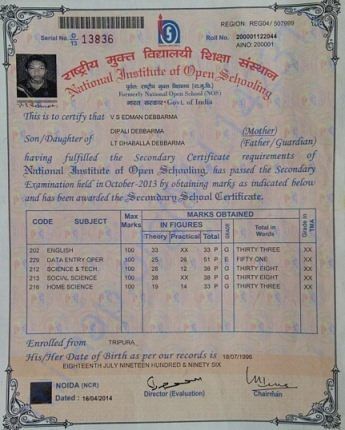 REGION: REG04/ 507999
Serial No. O/13 13836
Roll No. 200001122044
AINO: 200001
राष्ट्रीय मुक्त विद्यालयी शिक्षा संस्थान
National Institute of Open Schooling
Formerly National Open School (NOS)
भारत सरकार-Govt. of India
This is to certify that V S EDMAN DEBBARMA
Son/Daughter of DIPALI DEBBARMA (Mother)
LT DHABALLA DEBBARMA (Father / Guardian)
having fulfilled the Secondary Certificate requirements of
National Institute of Open Schooling, has passed the Secondary
Examination held in October-2013 by obtaining marks as indicated below
and has been awarded the Secondary School Certificate.
CODE SUBJECT Max Marks MARKS OBTAINED Grade in TMA
IN FIGURES GRADE Total in Words
Theory Practical Total
202 ENGLISH 100 33 XX 33 P G THIRTY THREE XX
229 DATA ENTRY OPER 100 25 26 51 P E FIFTY ONE XX
212 SCIENCE & TECH. 100 26 12 38 P G THIRTY EIGHT XX
213 SOCIAL SCIENCE 100 38 XX 38 P G THIRTY EIGHT XX
216 HOME SCIENCE 100 19 14 33 P G THIRTY THREE XX
Enrolled from TRIPURA
His/Her Date of Birth as per our records is 18/07/1996
EIGHTEENTH JULY NINETEEN HUNDRED & NINETY SIX
NOIDA (NCR)
Dated : 16/04/2014
Director (Evaluation)
Chairman